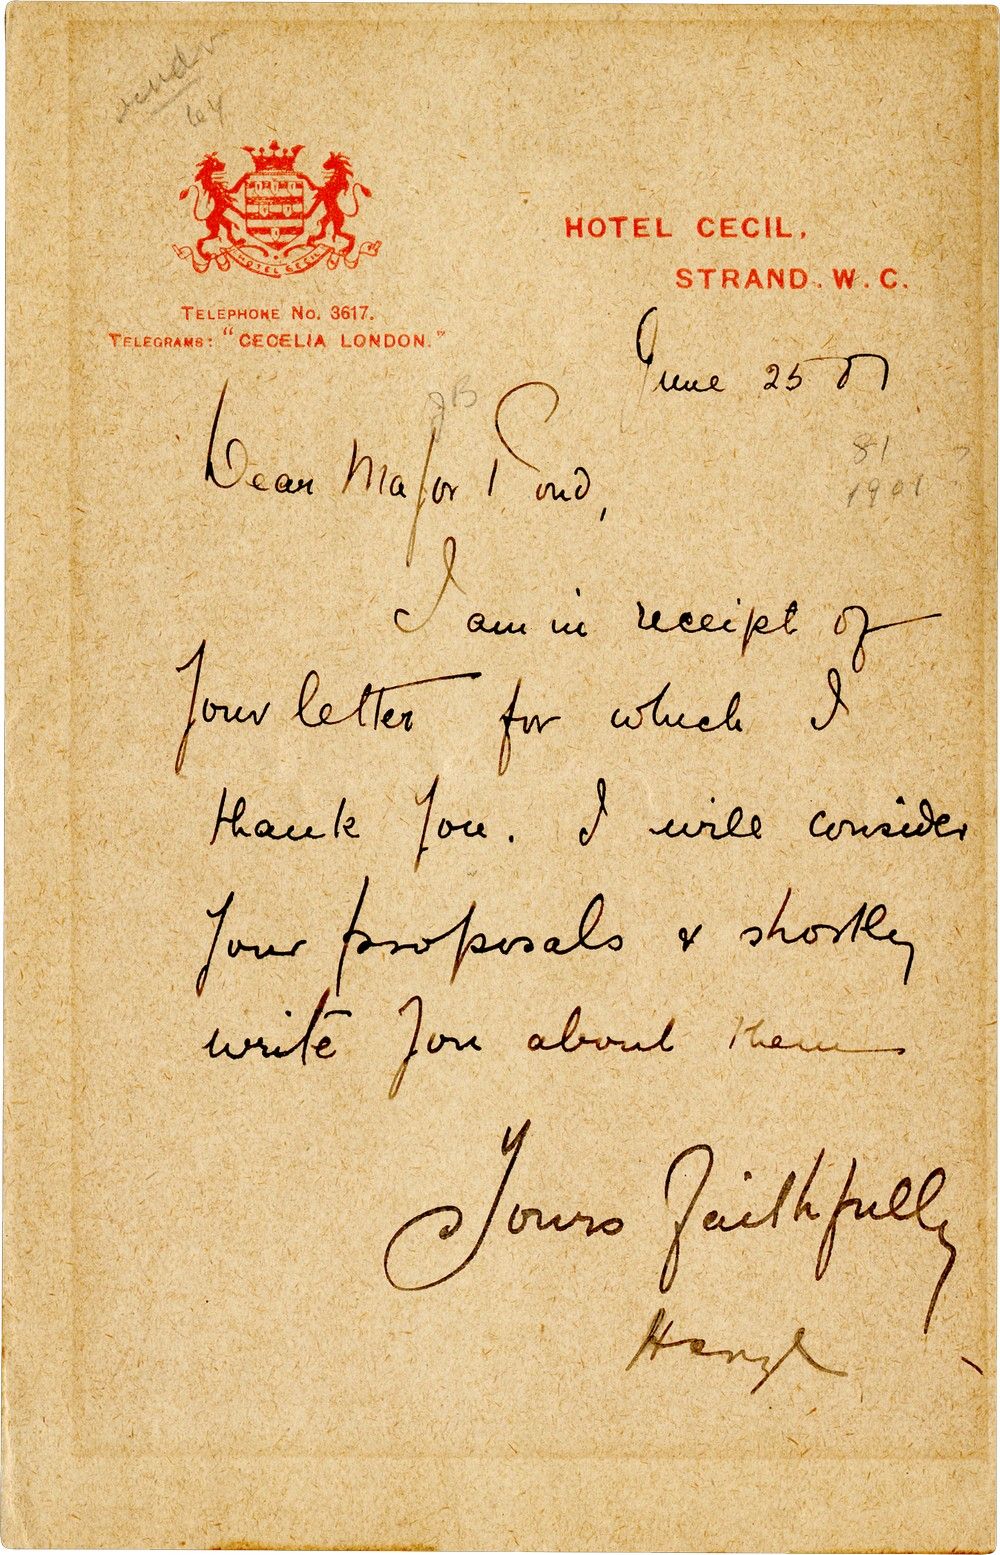 64
HOTEL CECIL
TELEPHONE NO. 3617.
TELEGRAMS: "CECELIA LONDON."
HOTEL CECIL,
STRAND. W. C.
June 25 01
JB
81
1901
Dear Major Pond,
I am in receipt of
your letter for which I
thank you. I will consider
your proposals & shortly
write you about them
Yours faithfully